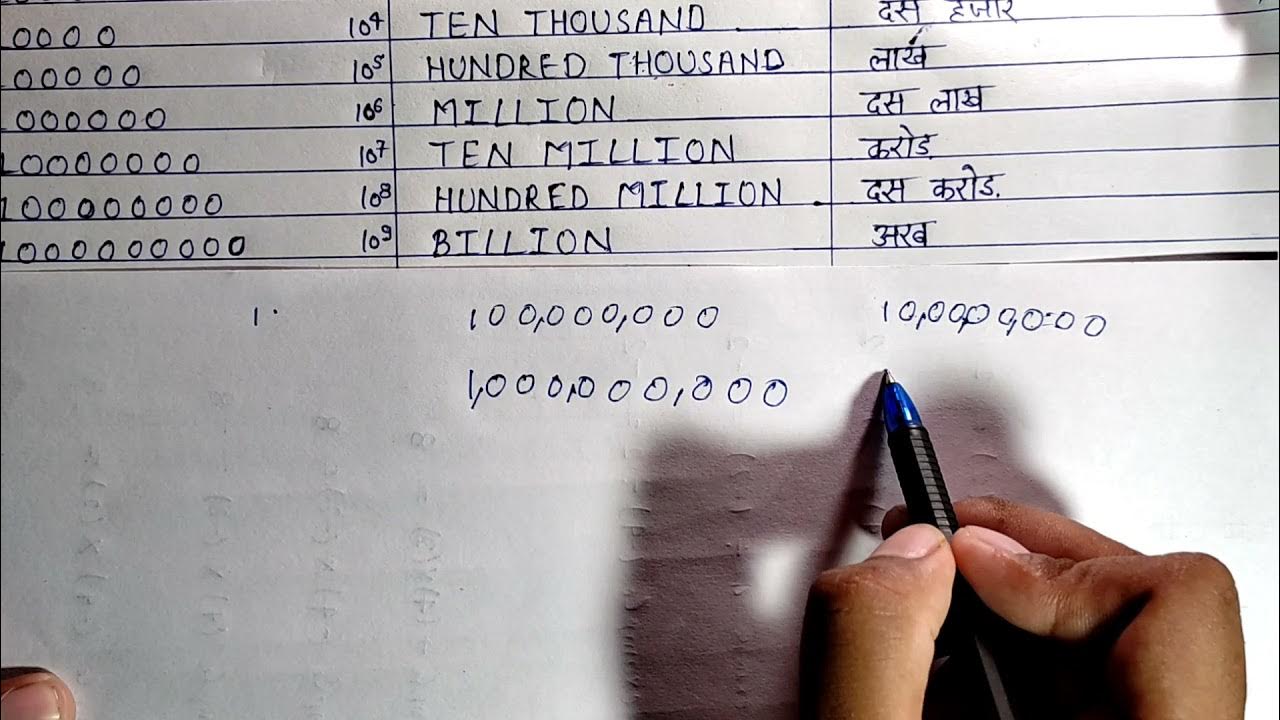 0000 10⁴ TEN THOUSAND दस हजार
00000 10⁵ HUNDRED THOUSAND लाख
000000 10⁶ MILLION दस लाख
10000000 10⁷ TEN MILLION करोड़
100000000 10⁸ HUNDRED MILLION . दस करोड.
1000000000 10⁹ BILLION अरब
1. 100,000,000 10,00,00,000
1,000,000,000